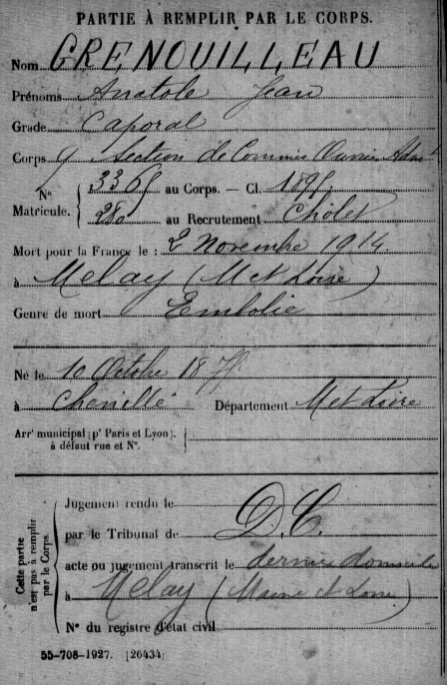 PARTIE À REMPLIR PAR LE CORPS.
Nom GRENOUILLEAU
Prénoms Anatole Jean
Grade Caporal
Corps 9 Section de Commis Ouvriers Admon
N° Matricule. 3365 au Corps. — Cl. 1895
280 au Recrutement Cholet
Mort pour la France le : 2 Novembre 1914
à Melay (M et Loire)
Genre de mort Embolie
Né le 10 Octobre 18
à Chenillé Département M et Loire
Arrt municipal (pr Paris et Lyon),
à défaut rue et N°.
Cette partie n'est pas à remplir par le Corps.
Jugement rendu le
par le Tribunal de D.C.
acte ou jugement transcrit le dernier domicile
à Melay (Maine et Loire)
N° du registre d'état civil
55-708-1927. [26434]